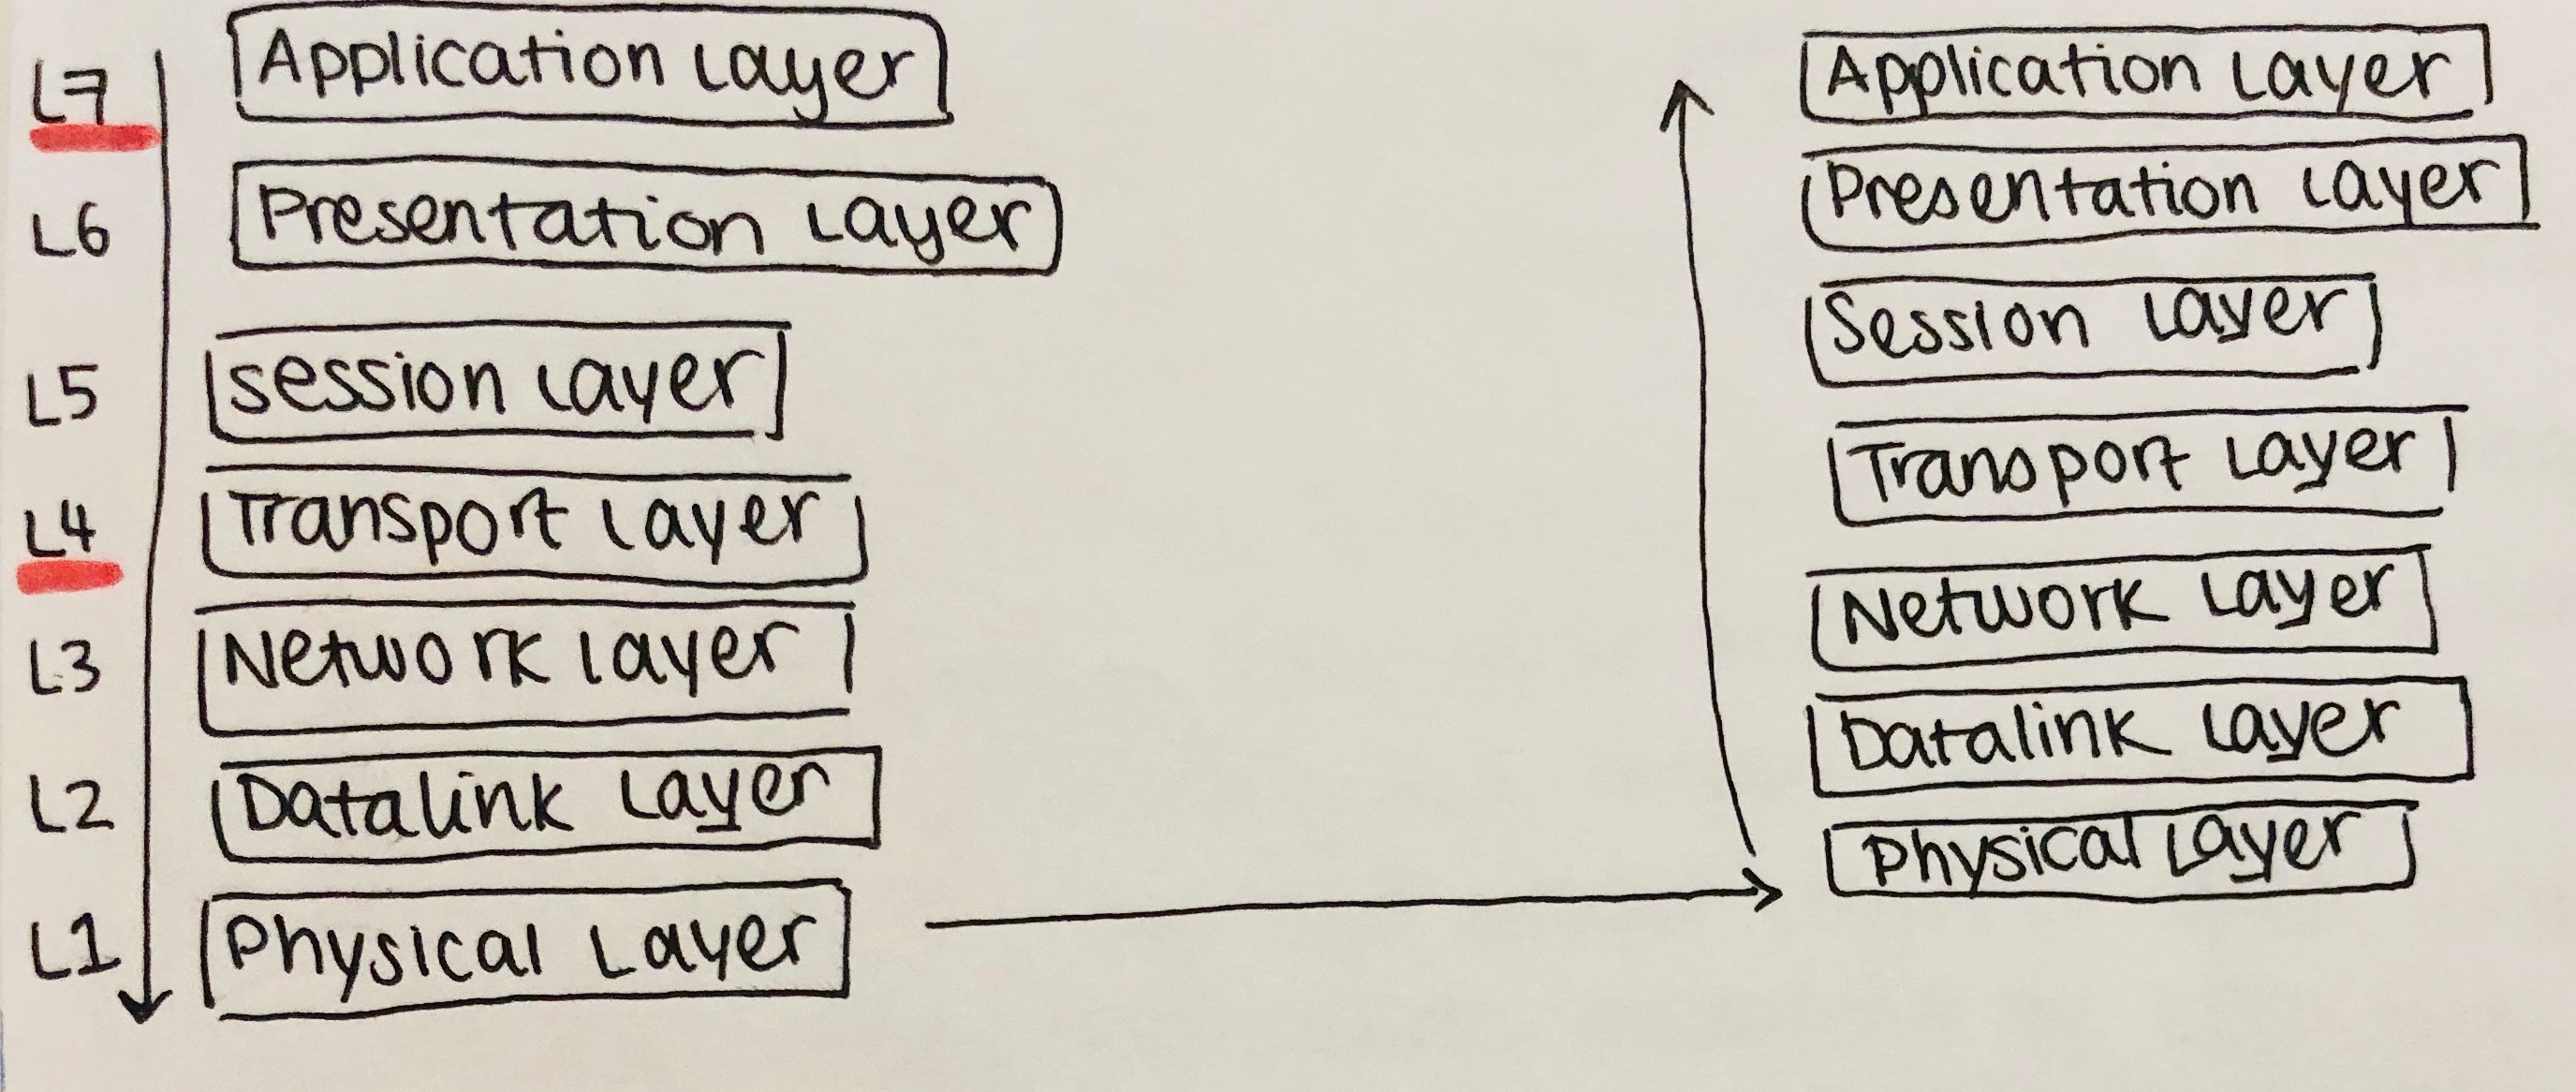 L7
Application Layer
L6
Presentation Layer
L5
session Layer
L4
Transport Layer
L3
Network layer
L2
Datalink Layer
L1
Physical Layer
Application Layer
Presentation Layer
Session Layer
Transport Layer
Network Layer
Datalink Layer
Physical Layer